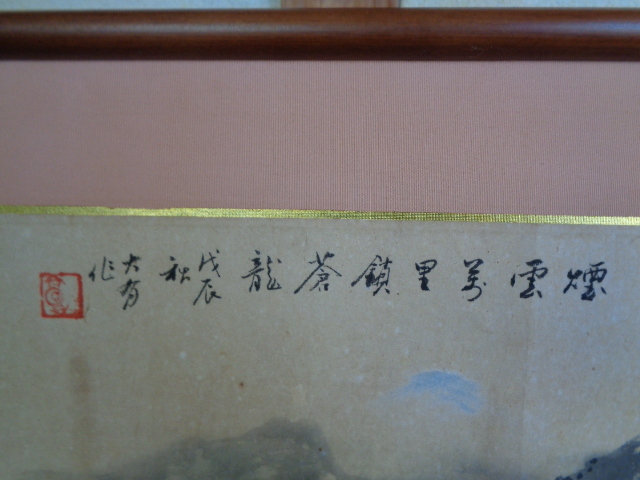 煙雲萬里鎖蒼龍
戊辰秋
大有作